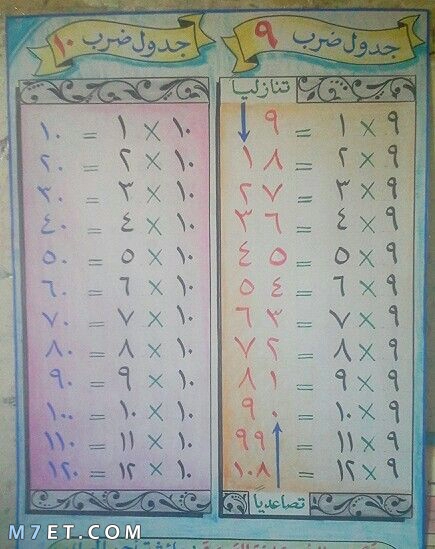 جدول ضرب ٩
تنازليا
٩ × ١ = ٩
٩ × ٢ = ١٨
٩ × ٣ = ٢٧
٩ × ٤ = ٣٦
٩ × ٥ = ٤٥
٩ × ٦ = ٥٤
٩ × ٧ = ٦٣
٩ × ٨ = ٧٢
٩ × ٩ = ٨١
٩ × ١٠ = ٩٠
٩ × ١١ = ٩٩
٩ × ١٢ = ١٠٨
تصاعديا
جدول ضرب ١٠
١٠ × ١ = ١٠
١٠ × ٢ = ٢٠
١٠ × ٣ = ٣٠
١٠ × ٤ = ٤٠
١٠ × ٥ = ٥٠
١٠ × ٦ = ٦٠
١٠ × ٧ = ٧٠
١٠ × ٨ = ٨٠
١٠ × ٩ = ٩٠
١٠ × ١٠ = ١٠٠
١٠ × ١١ = ١١٠
١٠ × ١٢ = ١٢٠
M7ET.COM